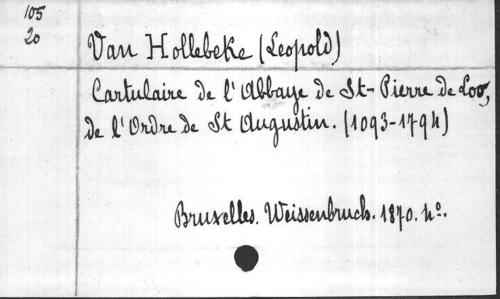 105
20
Van Hollebeke (Leopold)
Cartulaire de l'Abbaye de St-Pierre de Loo,
de l'Ordre de St Augustin. (1093-1794)
Bruxelles. Weissenbruch. 1870. 4º.